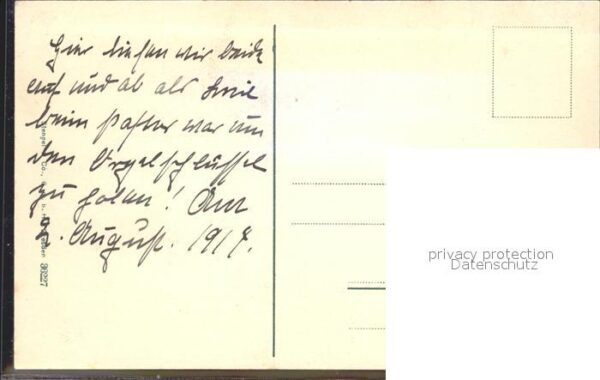 Hier liefen wir beide
auf und ab als Emil
beim Pastor war um
den Orgelschlüssel
zu holen! Am
August. 1917.
Stengel & Co.,
36227
privacy protection
Datenschutz